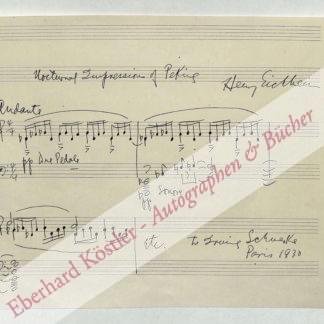 Nocturnal Impressions of Peking
Henry Eichheim
Andante
pp Due Pedale
sonore
etc.
To Irving Schwerké
Paris 1930
Eberhard Köstler - Autographen & Bücher